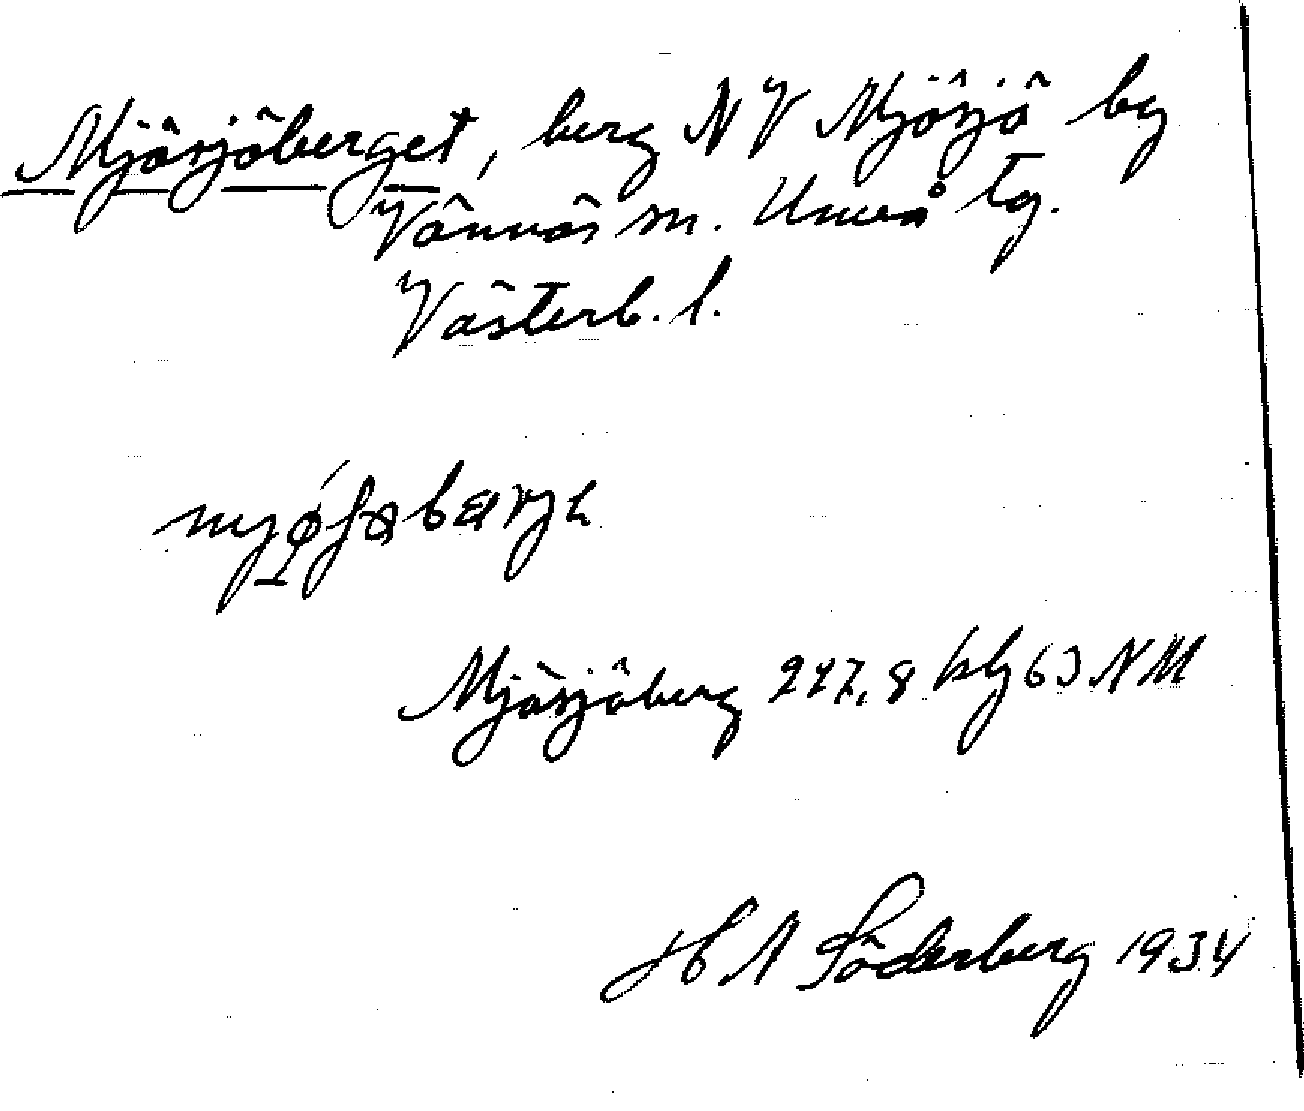 Mjösjöberget, berg NV Mjösjö by
Vännäs sn. Umeå tg.
Västerb. l.
Mjösjöberg 227,8 kbl 63 NM
H A Söderberg 1934